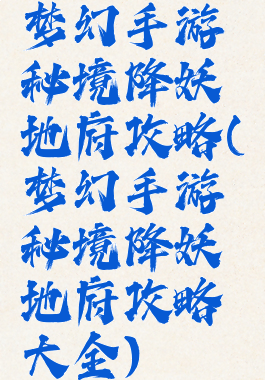 梦幻手游
秘境降妖
地府攻略(
梦幻手游
秘境降妖
地府攻略
大全)